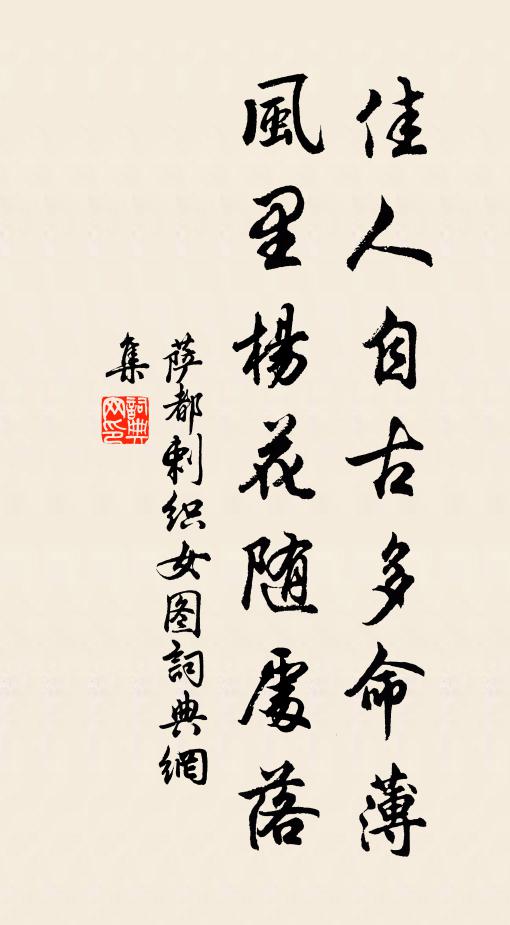 佳人自古多命薄
風里楊花随處落
薩都剌织女图詞典網
集
詞典
网印